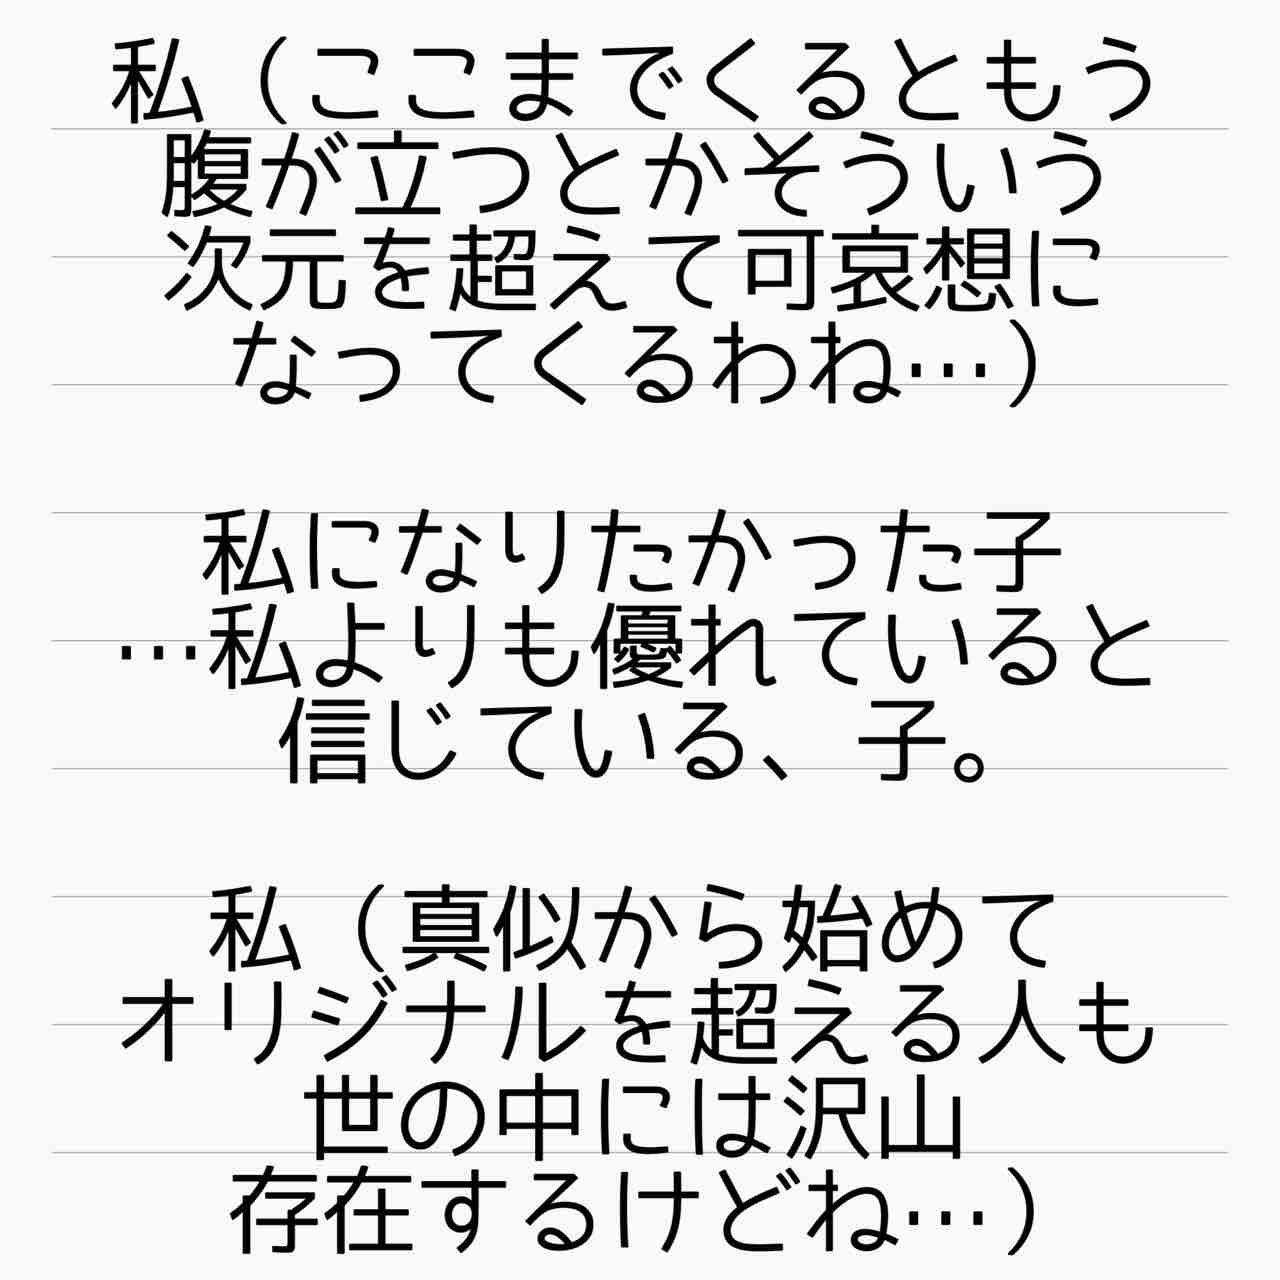 私（ここまでくるともう
腹が立つとかそういう
次元を超えて可哀想に
なってくるわね…）
私になりたかった子
…私よりも優れていると
信じている、子。
私（真似から始めて
オリジナルを超える人も
世の中には沢山
存在するけどね…）